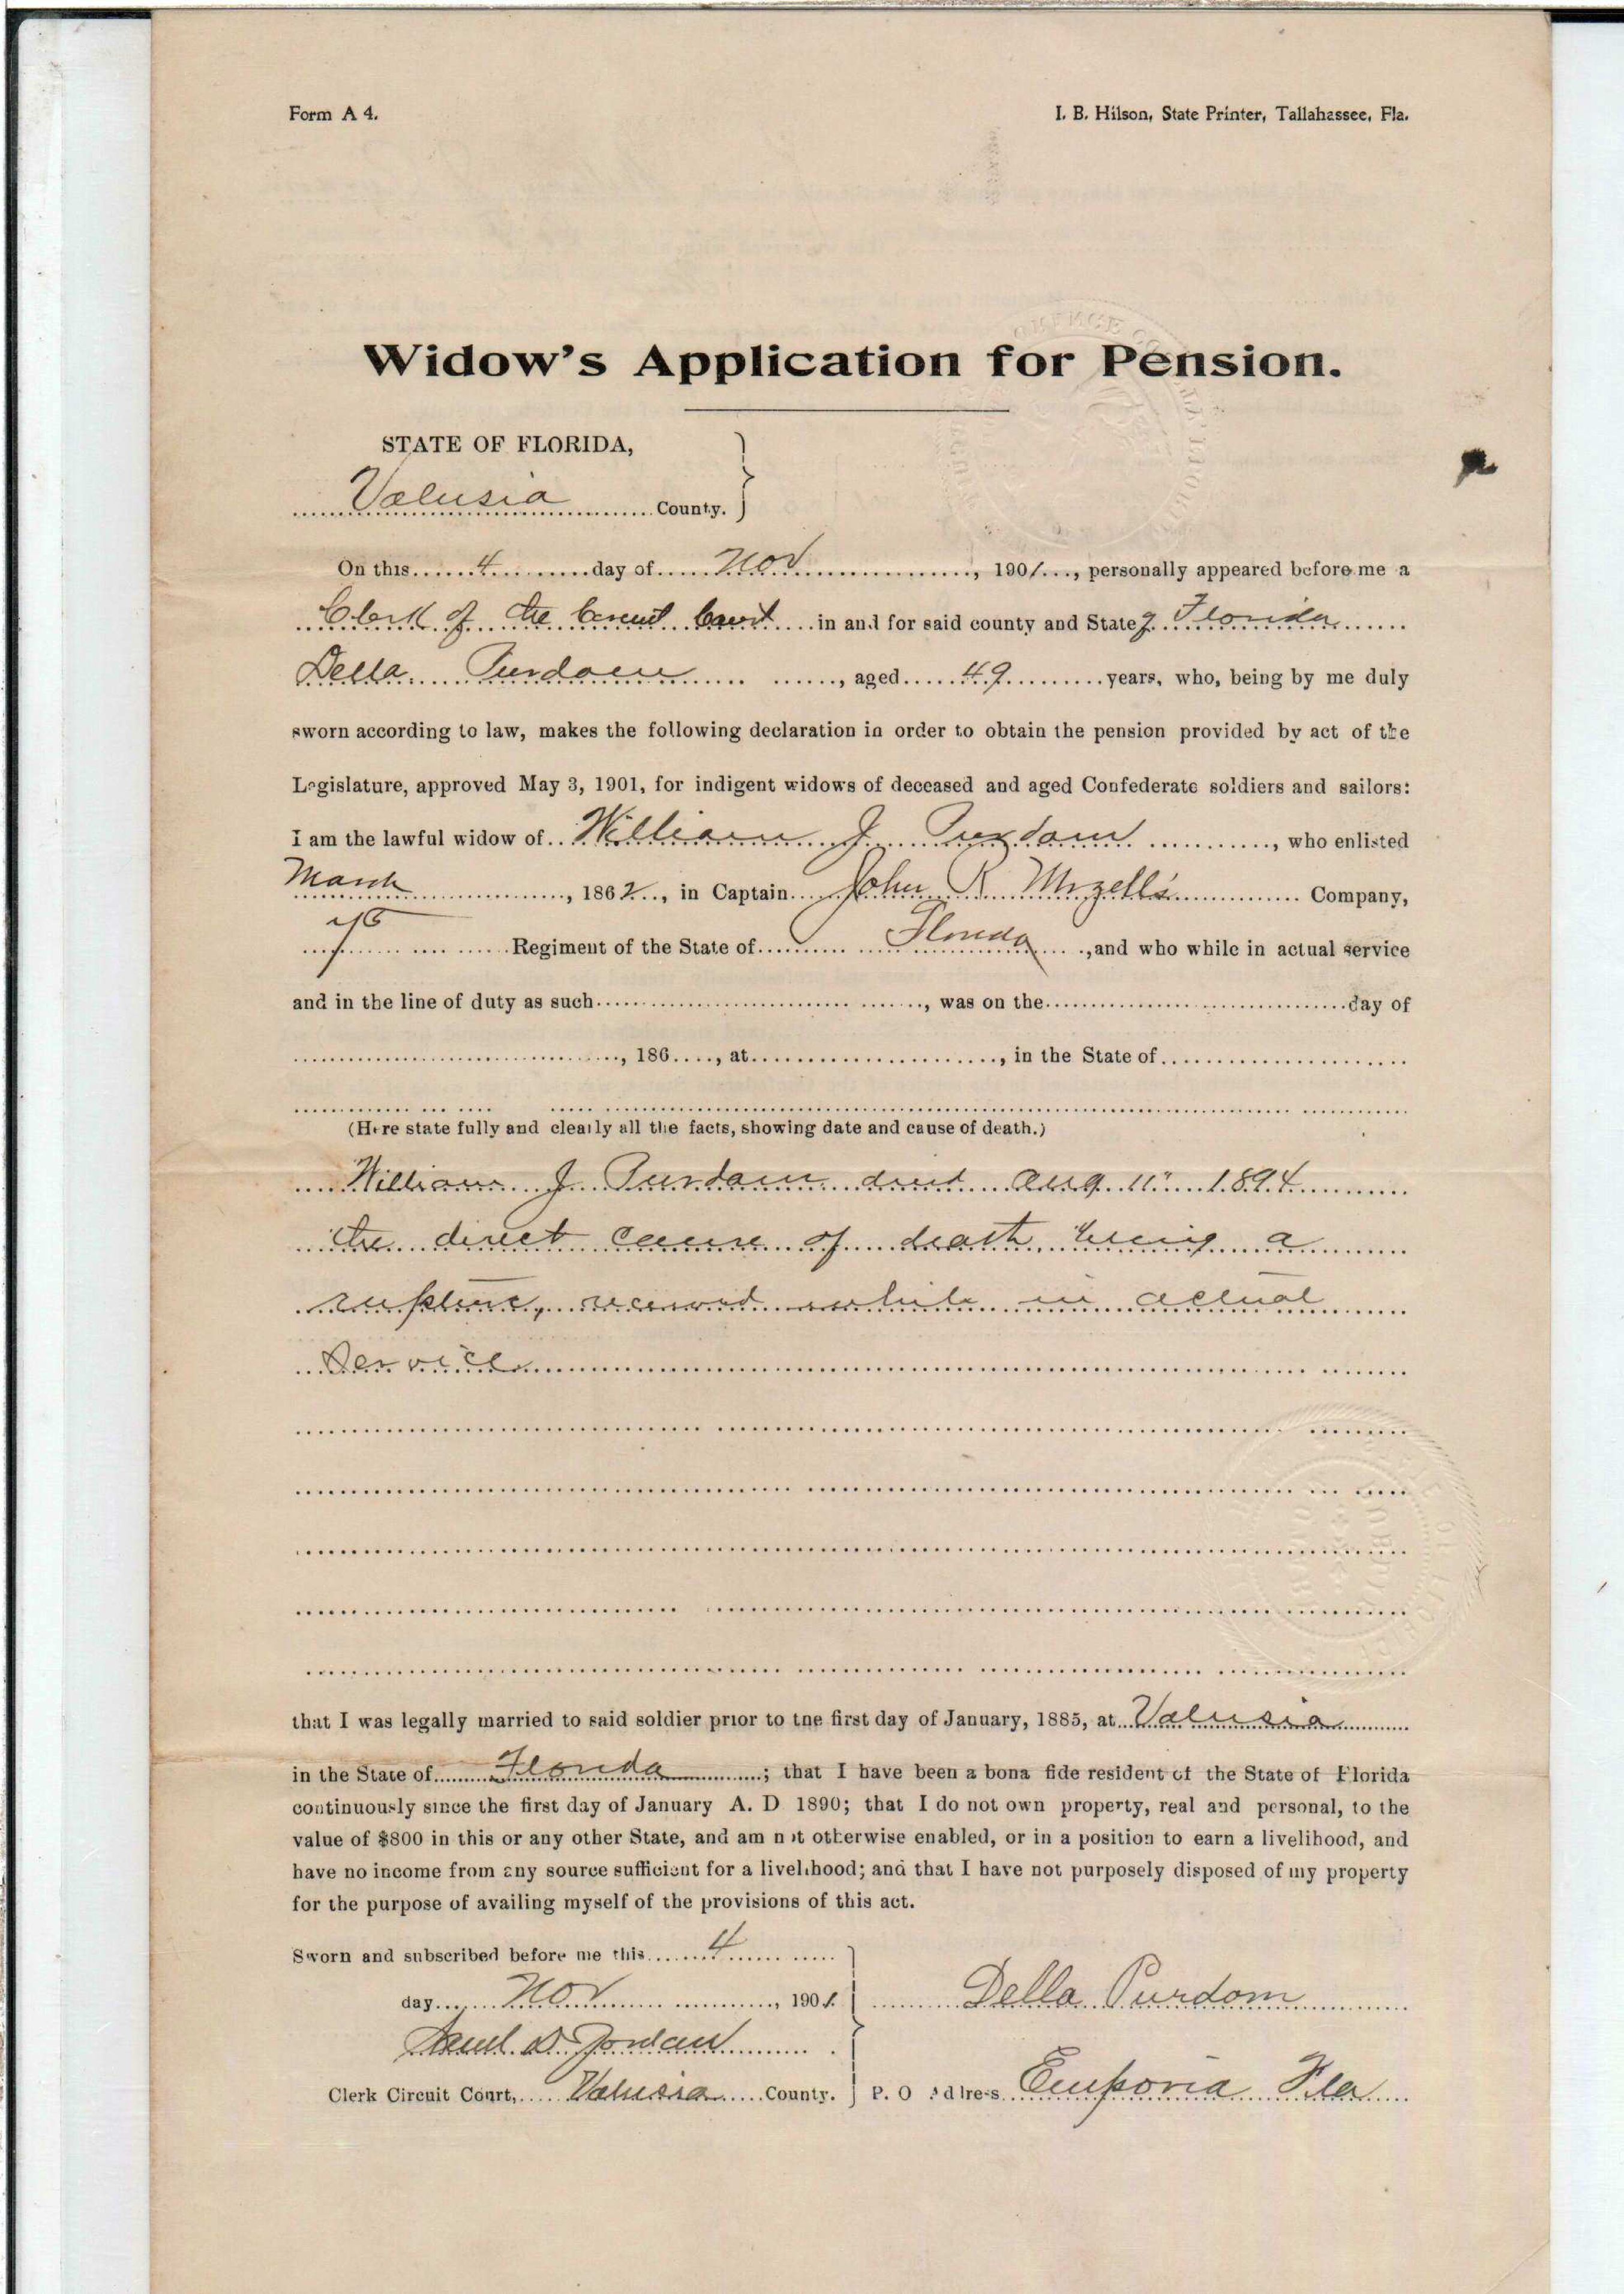 Form A 4.
I. B. Hilson, State Printer, Tallahassee, Fla.
Widow's Application for Pension.
STATE OF FLORIDA,
Volusia County.
On this 4 day of Nov, 1901, personally appeared before me a
Clerk of the Circuit Court in and for said county and State of Florida
Della Purdom, aged 49 years, who, being by me duly
sworn according to law, makes the following declaration in order to obtain the pension provided by act of the
Legislature, approved May 3, 1901, for indigent widows of deceased and aged Confederate soldiers and sailors:
I am the lawful widow of William J Purdom, who enlisted
March, 1862, in Captain John R Mizell's Company,
7th Regiment of the State of Florida, and who while in actual service
and in the line of duty as such, was on the day of
, 186, at, in the State of
(Here state fully and clearly all the facts, showing date and cause of death.)
William J Purdom died Aug 11" 1894
the direct cause of death being a
rupture, received while in actual
Service
that I was legally married to said soldier prior to the first day of January, 1885, at Volusia
in the State of Florida; that I have been a bona fide resident of the State of Florida
continuously since the first day of January A. D 1890; that I do not own property, real and personal, to the
value of $800 in this or any other State, and am not otherwise enabled, or in a position to earn a livelihood, and
have no income from any source sufficient for a livelihood; and that I have not purposely disposed of my property
for the purpose of availing myself of the provisions of this act.
Sworn and subscribed before me this 4
day Nov, 1901.
Della Purdom
Saml D. Jordan
Clerk Circuit Court, Volusia County.
P. O Address Emporia Fla